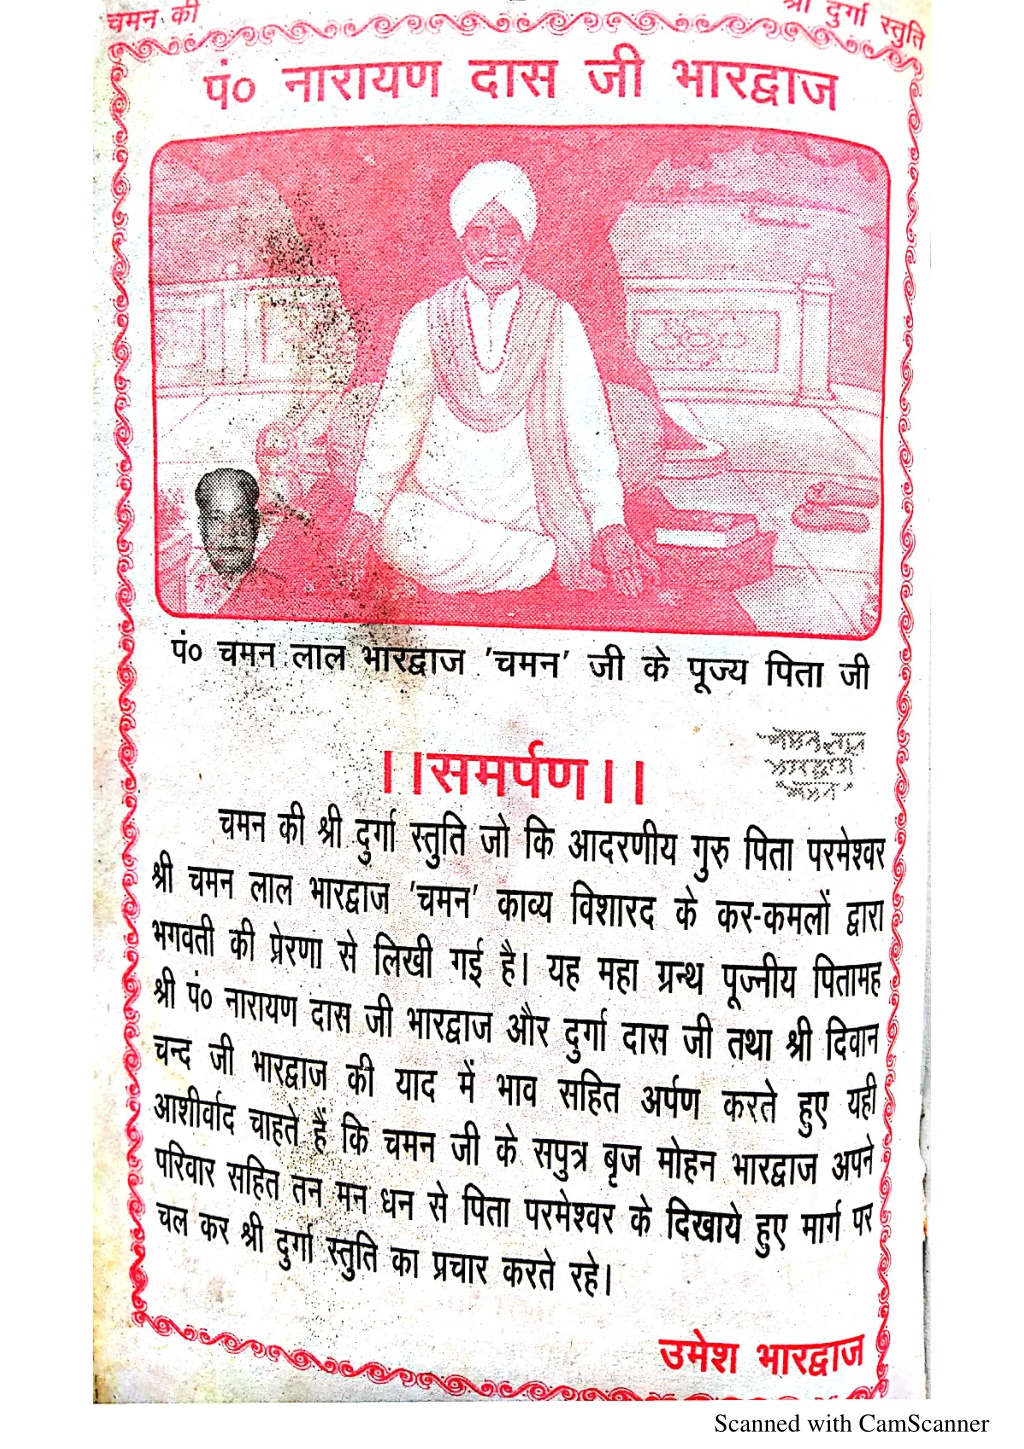 चमन की
श्री दुर्गा स्तुति
पं० नारायण दास जी भारद्वाज
पं० चमन लाल भारद्वाज 'चमन' जी के पूज्य पिता जी
चमन लाल
भारद्वाज
"चमन"
।।समर्पण।।
चमन की श्री दुर्गा स्तुति जो कि आदरणीय गुरु पिता परमेश्वर
श्री चमन लाल भारद्वाज 'चमन' काव्य विशारद के कर-कमलों द्वारा
भगवती की प्रेरणा से लिखी गई है। यह महा ग्रन्थ पूज्नीय पितामह
श्री पं० नारायण दास जी भारद्वाज और दुर्गा दास जी तथा श्री दिवान
चन्द जी भारद्वाज की याद में भाव सहित अर्पण करते हुए यही
आशीर्वाद चाहते हैं कि चमन जी के सपुत्र बृज मोहन भारद्वाज अपने
परिवार सहित तन मन धन से पिता परमेश्वर के दिखाये हुए मार्ग पर
चल कर श्री दुर्गा स्तुति का प्रचार करते रहे।
उमेश भारद्वाज
Scanned with CamScanner